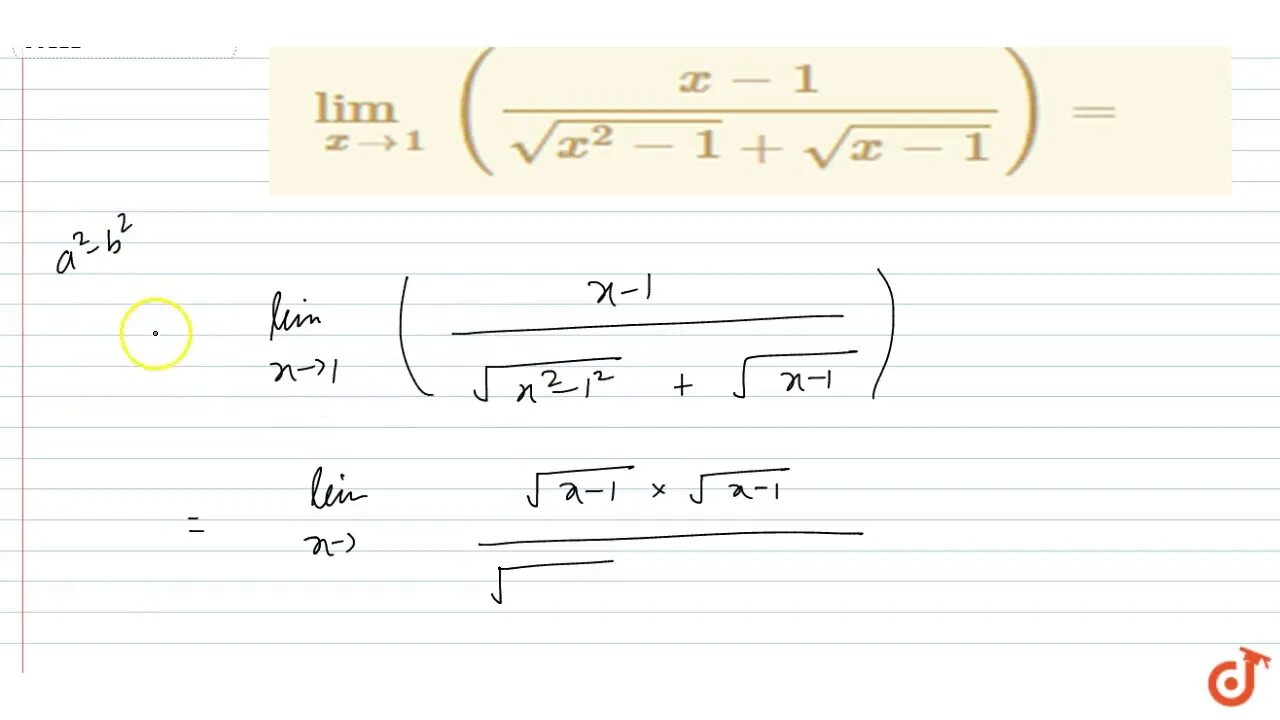 lim x→1 ( x − 1 / √x² − 1 + √x − 1 ) =
a² − b²
lim x→1 ( x−1 / √x²−1² + √x−1 )
= lim x→ √x−1 × √x−1 / √